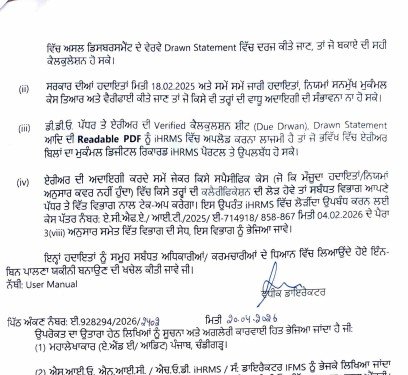 ਵਿੱਚ ਅਸਲ ਡਿਸਬਰਸਮੈਂਟ ਦੇ ਵੇਰਵੇ Drawn Statement ਵਿੱਚ ਦਰਜ ਕੀਤੇ ਜਾਣ, ਤਾਂ ਜੋ ਬਕਾਏ ਦੀ ਸਹੀ
ਕੈਲਕੁਲੇਸ਼ਨ ਹੋ ਸਕੇ।
(ii) ਸਰਕਾਰ ਦੀਆਂ ਹਦਾਇਤਾਂ ਮਿਤੀ 18.02.2025 ਅਤੇ ਸਮੇਂ ਸਮੇਂ ਜਾਰੀ ਹਦਾਇਤਾਂ, ਨਿਯਮਾਂ ਸਨਮੁੱਖ ਮੁਕੰਮਲ
ਕੇਸ ਤਿਆਰ ਅਤੇ ਵੈਰੀਫਾਈ ਕੀਤੇ ਜਾਣ ਤਾਂ ਜੋ ਕਿਸੇ ਵੀ ਤਰ੍ਹਾਂ ਦੀ ਵਾਧੂ ਅਦਾਇਗੀ ਦੀ ਸੰਭਾਵਨਾ ਨਾ ਹੋ ਸਕੇ।
(iii) ਡੀ.ਡੀ.ਓ. ਪੱਧਰ ਤੇ ਏਰੀਅਰ ਦੀ Verified ਕੈਲਕੁਲੇਸ਼ਨ ਸ਼ੀਟ (Due Drwan), Drawn Statement
ਆਦਿ ਦੀ Readable PDF ਨੂੰ iHRMS ਵਿੱਚ ਅਪਲੋਡ ਕਰਨਾ ਲਾਜਮੀ ਹੈ ਤਾਂ ਜੋ ਭਵਿੱਖ ਵਿੱਚ ਏਰੀਅਰ
ਬਿਲਾਂ ਦਾ ਮੁਕੰਮਲ ਡਿਜੀਟਲ ਰਿਕਾਰਡ iHRMS ਪੋਰਟਲ ਤੇ ਉਪਲਬਧ ਹੋ ਸਕੇ।
(iv) ਏਰੀਅਰ ਦੀ ਅਦਾਇਗੀ ਕਰਦੇ ਸਮੇਂ ਜੇਕਰ ਕਿਸੇ ਸਪੈਸੀਫਿਕ ਕੇਸ (ਜੋ ਕਿ ਮੌਜੂਦਾ ਹਦਾਇਤਾਂ/ਨਿਯਮਾਂ
ਅਨੁਸਾਰ ਕਵਰ ਨਹੀਂ ਹੁੰਦਾ) ਵਿੱਚ ਕਿਸੇ ਤਰ੍ਹਾਂ ਦੀ ਕਲੈਰੀਫਿਕੇਸ਼ਨ ਦੀ ਲੋੜ ਹੋਵੇ ਤਾਂ ਸਬੰਧਤ ਵਿਭਾਗ ਆਪਣੇ
ਪੱਧਰ ਤੇ ਵਿੱਤ ਵਿਭਾਗ ਨਾਲ ਟੇਕ-ਅਪ ਕਰੇਗਾ। ਇਸ ਉਪਰੰਤ iHRMS ਵਿੱਚ ਲੋੜੀਂਦਾ ਉਪਬੰਧ ਕਰਨ ਲਈ
ਕੇਸ ਪੱਤਰ ਨੰਬਰ: ਏ.ਸੀ.ਐਫ.ਏ./ਆਈ.ਟੀ./2025/ ਈ-714918/ 858-867 ਮਿਤੀ 04.02.2026 ਦੇ ਪੈਰਾ
3(viii) ਅਨੁਸਾਰ ਸਮੇਤ ਵਿੱਤ ਵਿਭਾਗ ਦੀ ਸੇਧ, ਇਸ ਵਿਭਾਗ ਨੂੰ ਭੇਜਿਆ ਜਾਵੇ।
ਇਨ੍ਹਾਂ ਹਦਾਇਤਾਂ ਨੂੰ ਸਮੂਹ ਸਬੰਧਤ ਅਧਿਕਾਰੀਆਂ/ ਕਰਮਚਾਰੀਆਂ ਦੇ ਧਿਆਨ ਵਿੱਚ ਲਿਆਉਂਦੇ ਹੋਏ ਇੰਨ-
ਬਿਨ ਪਾਲਣਾ ਯਕੀਨੀ ਬਨਾਉਣ ਦੀ ਖੇਚਲ ਕੀਤੀ ਜਾਵੇ ਜੀ।
ਨੱਥੀ: User Manual
ਵਧੀਕ ਡਾਇਰੈਕਟਰ
ਪਿੱਠ ਅੰਕਣ ਨੰਬਰ: ਈ.928294/2026/ ਮਿਤੀ 20.04.2026
ਉਪਰੋਕਤ ਦਾ ਉਤਾਰਾ ਹੇਠ ਲਿਖਿਆਂ ਨੂੰ ਸੂਚਨਾ ਅਤੇ ਅਗਲੇਰੀ ਕਾਰਵਾਈ ਹਿਤ ਭੇਜਿਆ ਜਾਂਦਾ ਹੈ ਜੀ:
(1) ਮਹਾਲੇਖਾਕਾਰ (ਏ.ਐਂਡ ਈ/ ਆਡਿਟ) ਪੰਜਾਬ, ਚੰਡੀਗੜ੍ਹ।
(2) ਐਸ.ਆਈ.ਓ. ਐਨ.ਆਈ.ਸੀ. / ਐਚ.ਓ.ਡੀ. iHRMS / ਸ: ਡਾਇਰੈਕਟਰ IFMS ਨੂੰ ਭੇਜਕੇ ਲਿਖਿਆ ਜਾਂਦਾ